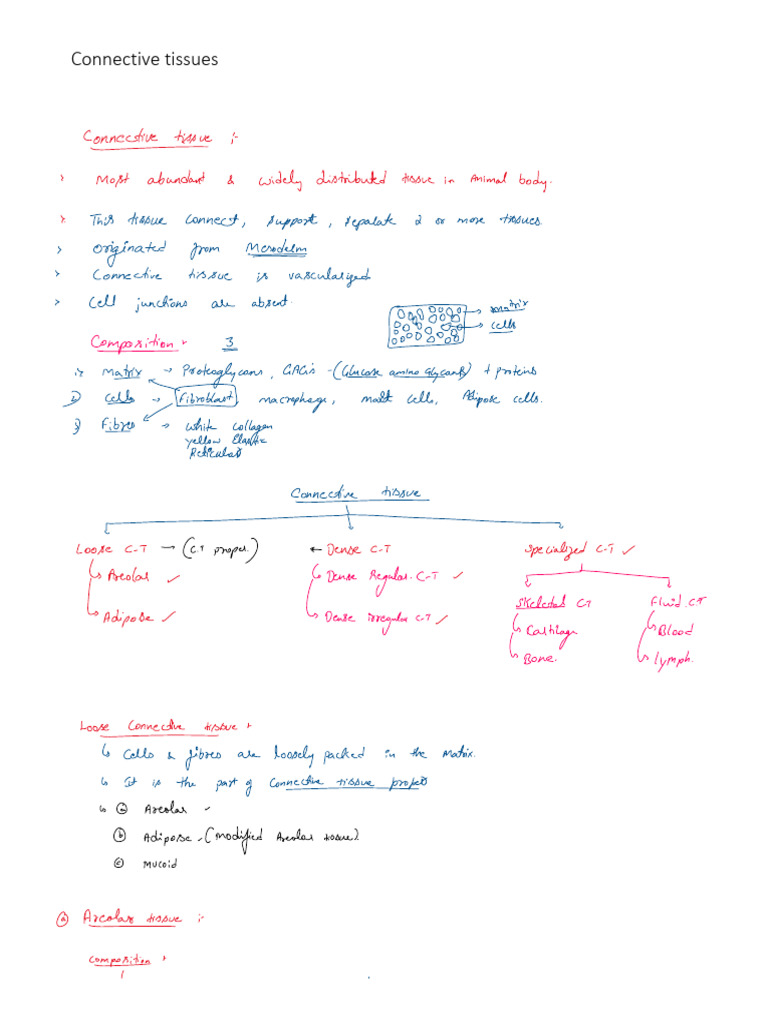 Connective tissues
Connective tissue :-
Most abundant & widely distributed tissue in Animal body.
This tissue connect, support, separate 2 or more tissues
originated from Mesoderm
Connective tissue is vascularized
Cell junctions are absent.
matrix
cells
Composition 3
1) Matrix → Proteoglycans, GAGs - (Glucose amino Glycans) + proteins
2) Cells → Fibroblast, macrophage, mast cells, Adipose cells.
3) Fibres → white collagen
yellow Elastic
Reticular
Connective tissue
Loose C-T → (C.T proper) ← Dense C-T Specialized C-T ✓
Areolar ✓ Dense Regular C-T ✓ Skeletal CT Fluid CT
Adipose ✓ Dense irregular C-T ✓ Cartilage Blood
Bone. lymph.
Loose Connective tissue
↳ Cells & fibres are loosely packed in the matrix.
↳ It is the part of Connective tissue proper
↳ (a) Areolar
(b) Adipose - (modified Areolar tissue)
(c) Mucoid
(a) Areolar tissue :-
Composition